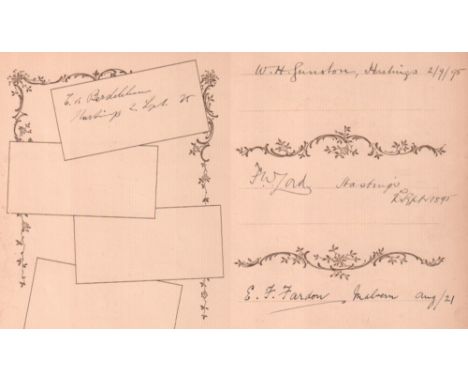 Hastings 2 Sept 95
W. H. Gunston, Hastings 2/9/95
F W Lord Hastings
2 Sept 1895
E. F. Fardon Malvern Aug/21